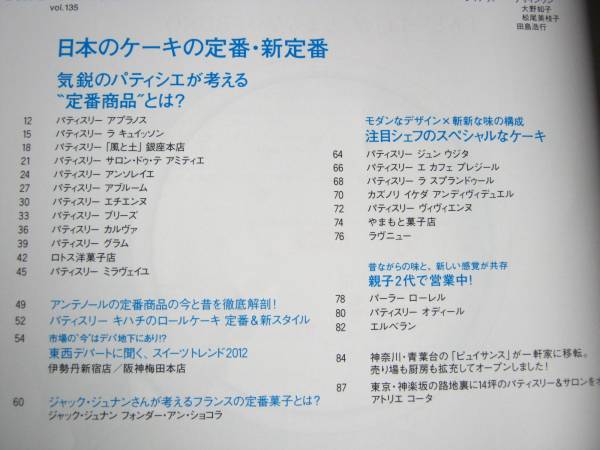 vol.135
大野知子
松尾美枝子
田島浩行
日本のケーキの定番・新定番
気鋭のパティシエが考える
“定番商品”とは?
12 パティスリー アプラノス
15 パティスリー ラ キュイッソン
18 パティスリー「風と土」銀座本店
21 パティスリー サロン・ドゥ・テ アミティエ
24 パティスリー アンソレイエ
27 パティスリー アプルーム
30 パティスリー エチエンヌ
33 パティスリー ブリーズ
36 パティスリー カルヴァ
39 パティスリー グラム
42 ロトス洋菓子店
45 パティスリー ミラヴェイユ
49 アンテノールの定番商品の今と昔を徹底解剖!
52 パティスリー キハチのロールケーキ 定番&新スタイル
54 市場の“今”はデパ地下にあり!?
東西デパートに聞く、スイーツトレンド2012
伊勢丹新宿店/阪神梅田本店
60 ジャック・ジュナンさんが考えるフランスの定番菓子とは?
ジャック・ジュナン フォンダー・アン・ショコラ
モダンなデザイン×斬新な味の構成
注目シェフのスペシャルなケーキ
64 パティスリー ジュン ウジタ
66 パティスリー エ カフェ プレジール
68 パティスリー ラ スプランドゥール
70 カズノリ イケダ アンディヴィデュエル
72 パティスリー ヴィヴィエンヌ
74 やまもと菓子店
76 ラヴニュー
昔ながらの味と、新しい感覚が共存
親子2代で営業中!
78 パーラー ローレル
80 パティスリー オディール
82 エルベラン
84 神奈川・青葉台の「ピュイサンス」が一軒家に移転。
売り場も厨房も拡充してオープンしました!
87 東京・神楽坂の路地裏に14坪のパティスリー&サロンを
アトリエ コータ